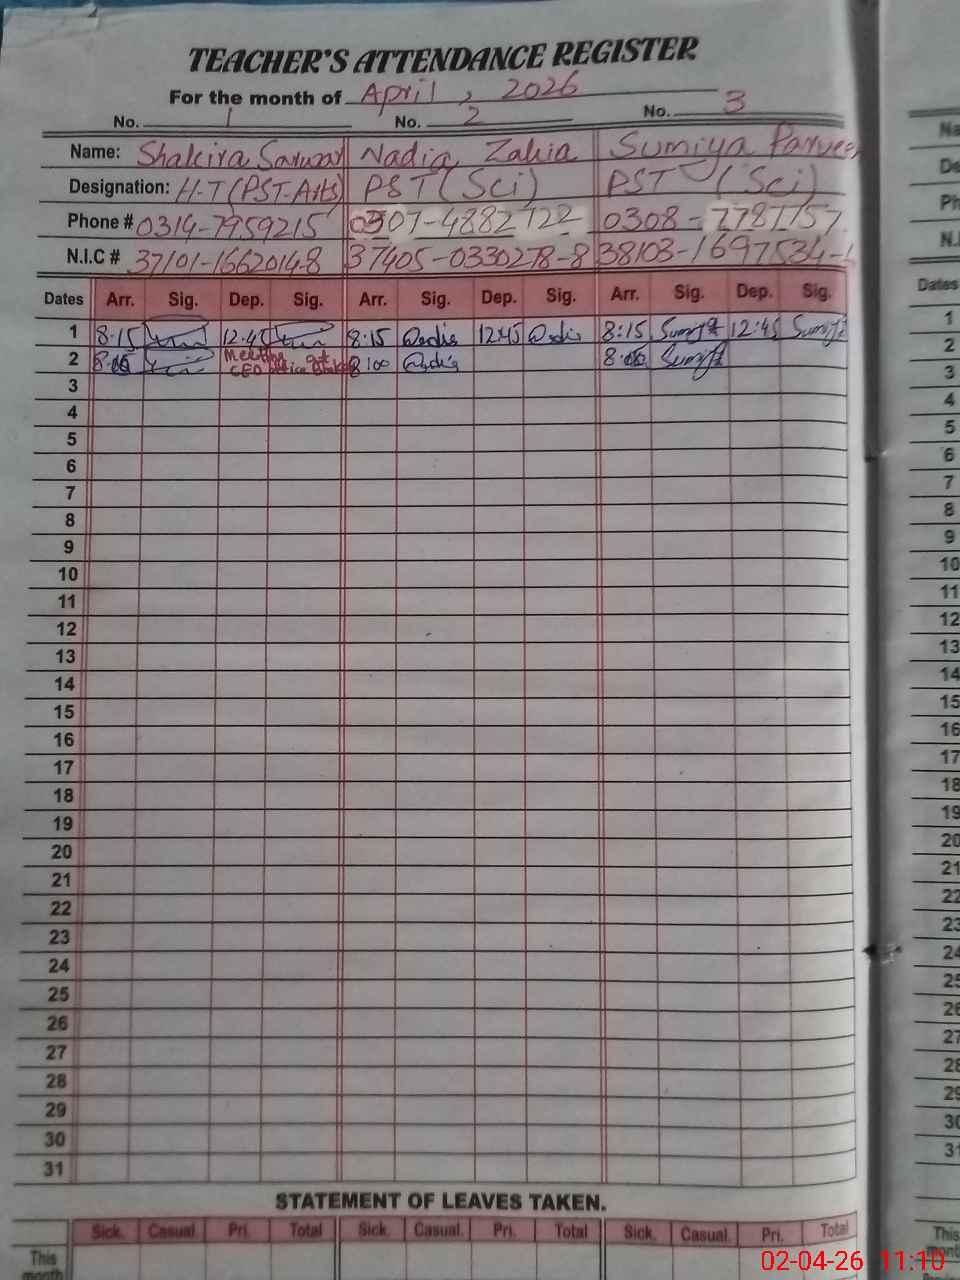 TEACHER'S ATTENDANCE REGISTER
For the month of April, 2026
No. 1 No. 2 No. 3
Name: Shakira Sarwar Nadia Zahia Sumiya Parveen
Designation: H-T (PST-Arts) PST (Sci) PST (Sci)
Phone # 0314-7959215 0307-4882722 0308-7787757
N.I.C # 37101-1662014-8 37405-0330278-8 38103-1697534-
Dates Arr. Sig. Dep. Sig. Arr. Sig. Dep. Sig. Arr. Sig. Dep. Sig.
1 8:15 12:45 8:15 12:45 8:15 12:45
2 8:00 Meeting at CEO office 8:00 8:00
3
4
5
6
7
8
9
10
11
12
13
14
15
16
17
18
19
20
21
22
23
24
25
26
27
28
29
30
31
STATEMENT OF LEAVES TAKEN.
Sick. Casual. Pri. Total Sick. Casual. Pri. Total Sick. Casual. Pri. Total
This
month
Dates
1
2
3
4
5
6
7
8
9
10
11
12
13
14
15
16
17
18
19
20
21
22
23
24
25
26
27
28
29
30
31
This
month
02-04-26 11:10